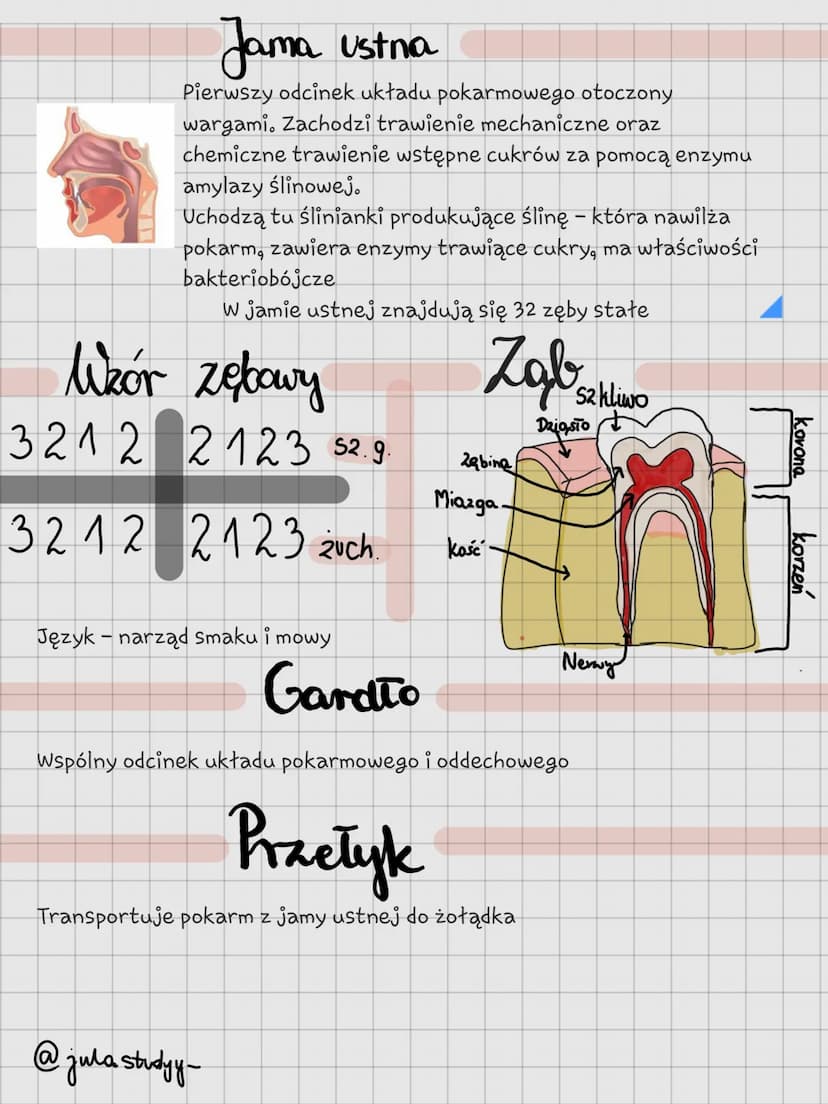 Jama ustna
Pierwszy odcinek układu pokarmowego otoczony
wargami. Zachodzi trawienie mechaniczne oraz
chemiczne trawienie wstępne cukrów za pomocą enzymu
amylazy ślinowej.
Uchodzą tu ślinianki produkujące ślinę – która nawilża
pokarm, zawiera enzymy trawiące cukry, ma właściwości
bakteriobójcze
W jamie ustnej znajdują się 32 zęby stałe
Wzór zębowy
3 2 1 2 2 1 2 3 sz. g.
3 2 1 2 2 1 2 3 żuch.
Ząb
szkliwo
Dziąsło
Zębina
Miazga
Kość
Nerwy
korona
korzeń
Język – narząd smaku i mowy
Gardło
Wspólny odcinek układu pokarmowego i oddechowego
Przełyk
Transportuje pokarm z jamy ustnej do żołądka
@julastudyy_